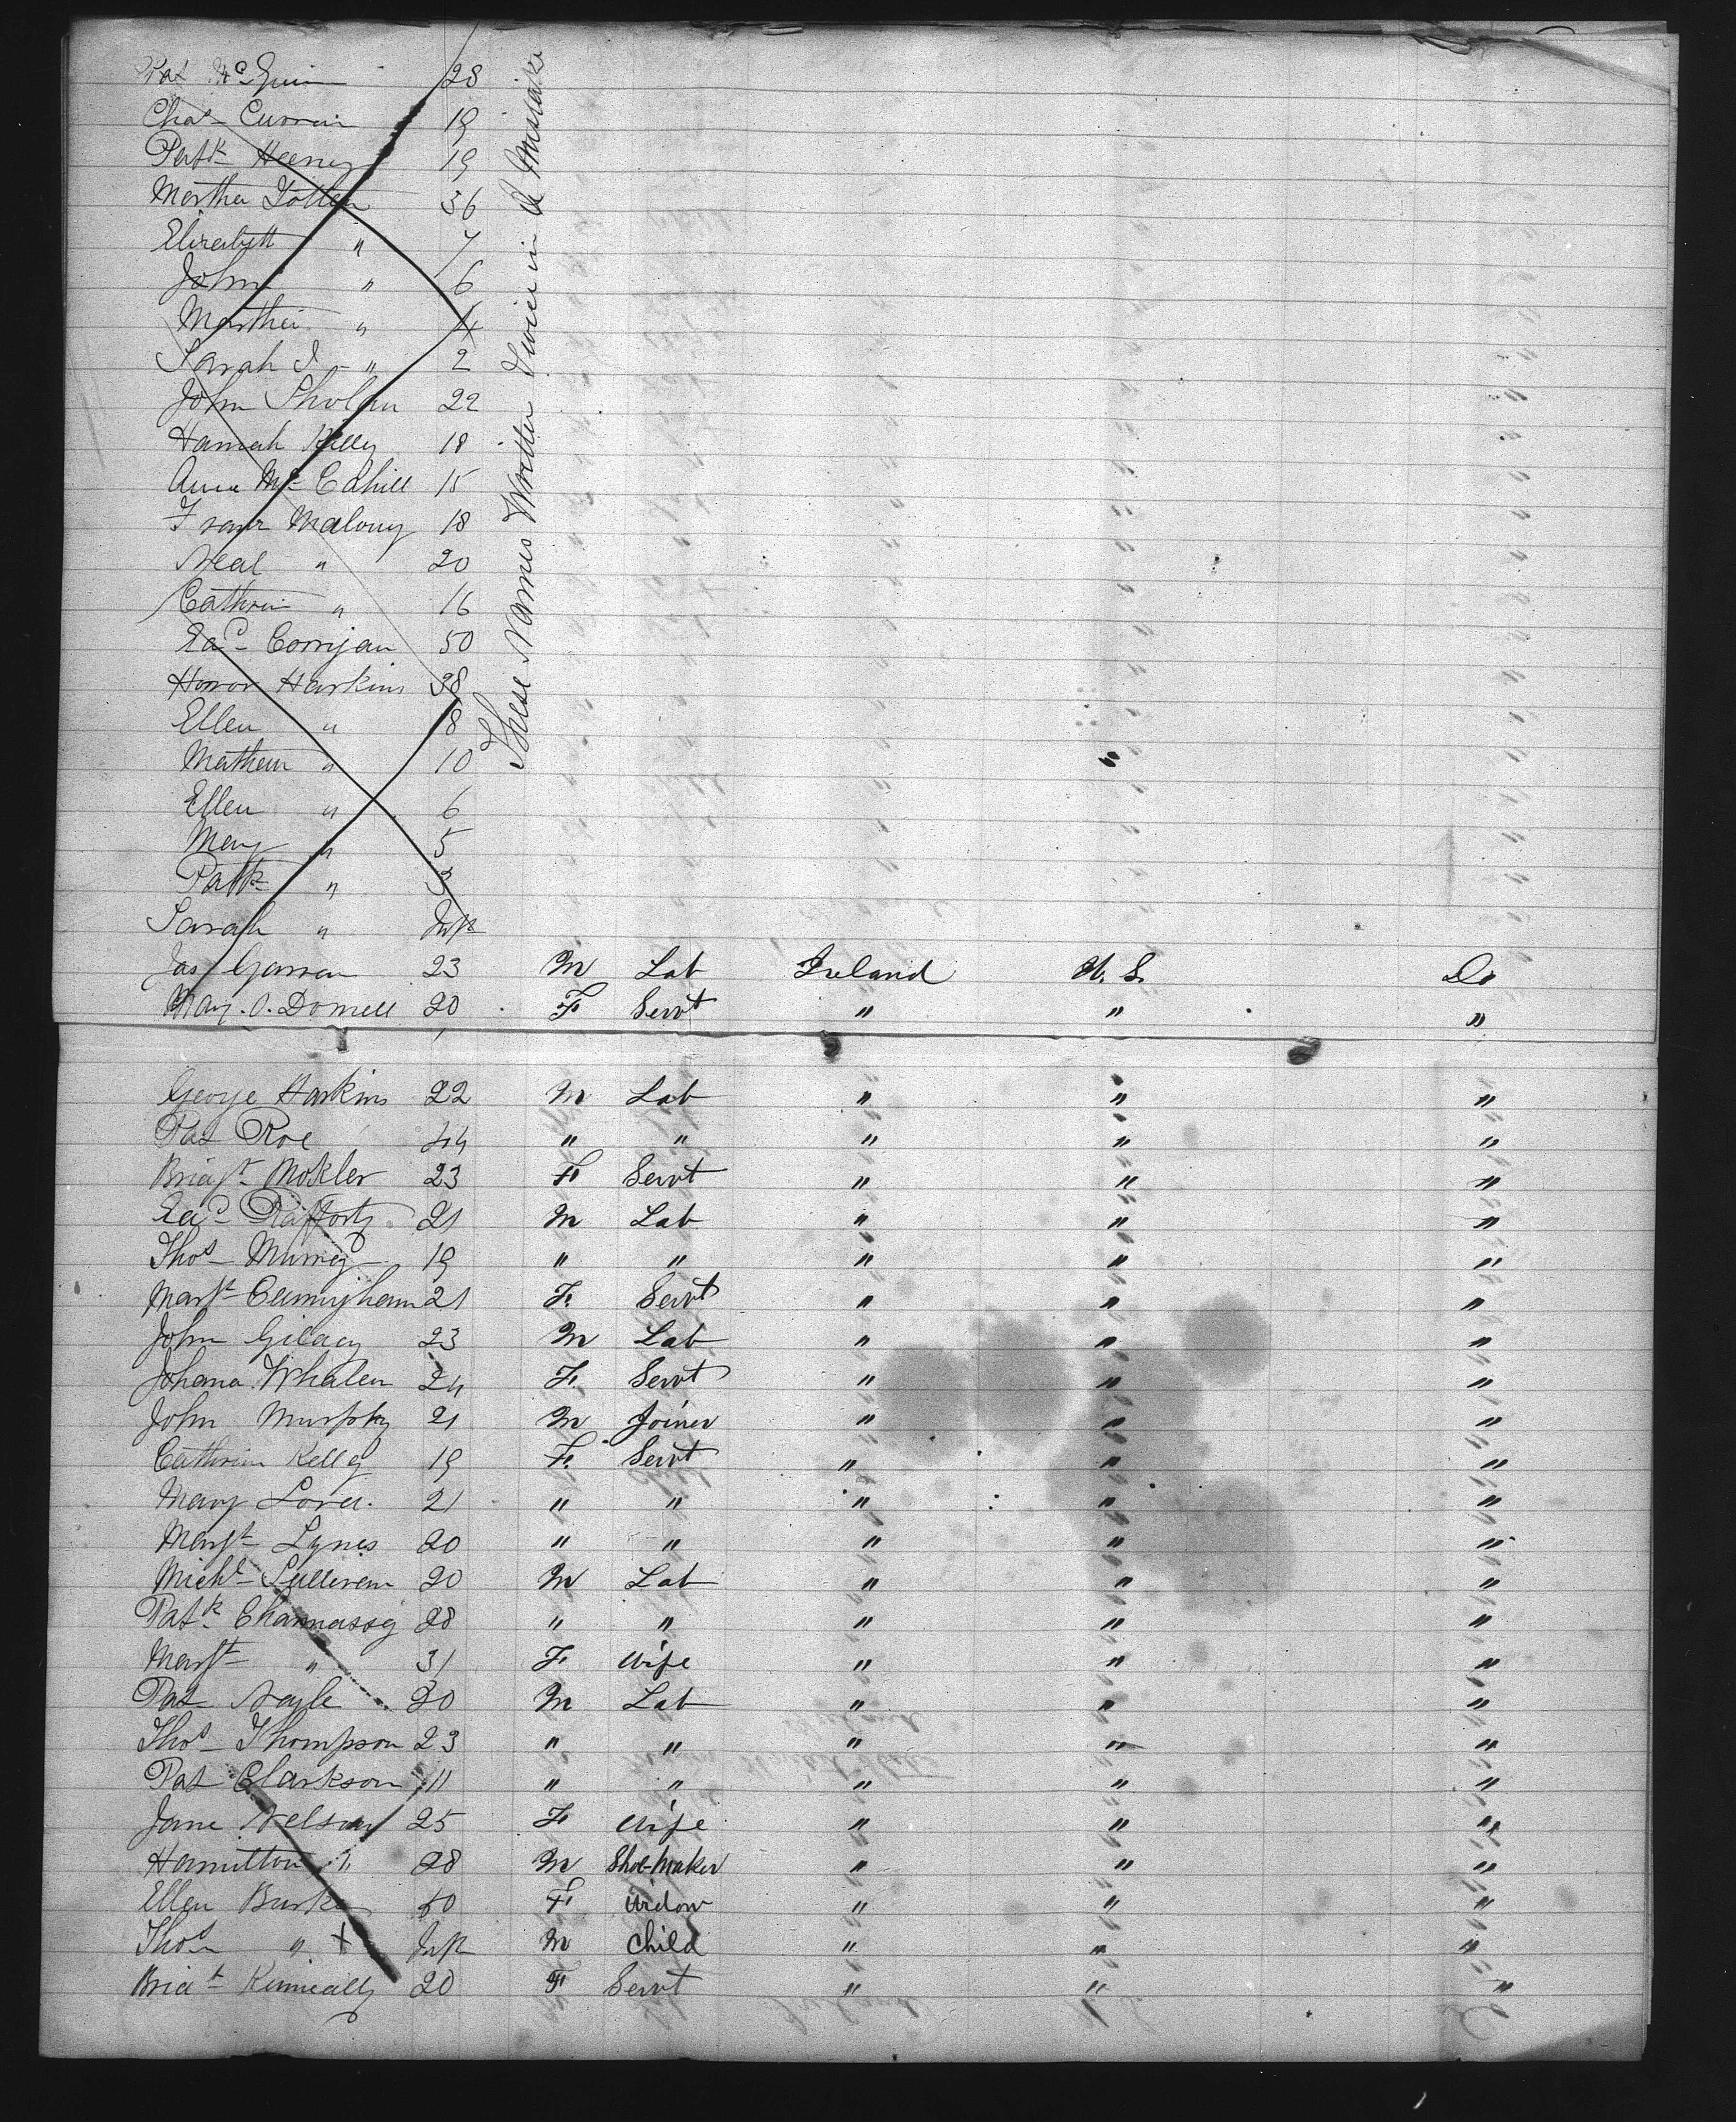 Pat McGuin 28
Chas Curran 19
Patk Heeney 19
Martha Totten 36
Elizabeth " 7
John " 6
Martha " 4
Sarah J " 2
John Sholan 22
Hannah Kelly 18
Anna McCahill 15
Malony 18
Neal " 20
Cathrin " 16
Edd Corrijan 50
Honor Harkins 38
Ellen " 8
Mathew " 10
Ellen " 6
Mary " 5
Patk " 3
Sarah " Inft
These Names Written Twice in A Mistake
Jas Garran 23 M Lab Ireland U.S. Do
Mary O. Donnell 20 F Servt " " "
George Harkins 22 M Lab " " "
Pat Roe 44 " " " " "
Bridgt Mokler 23 F Servt " " "
Edd Rafforty 21 M Lab " " "
Thos Murrey 19 " " " " "
Margt Cunnigham 21 F Servt " " "
John Gilacy 23 M Lab " " "
Johana Whalen 24 F Servt " " "
John Murphy 21 M Joiner " " "
Cathrin Kelly 19 F Servt " " "
Mary 21 " " " " "
Margt Lynes 20 " " " " "
Michl Sullivan 20 M Lab " " "
Patk Channassy 28 " " " " "
Margt " 31 F Wife " " "
Pat Nagle 30 M Lab " " "
Thos Thompson 23 " " " " "
Pat Clarkson 11 " " " " "
Jane Nelson 25 F Wife " " "
Hamilton " 28 M Shoe-Maker " " "
Ellen Burke 40 F Widow " " "
Thos " + Inft M Child " " "
Bridt Kinnealy 20 F Servt " " "